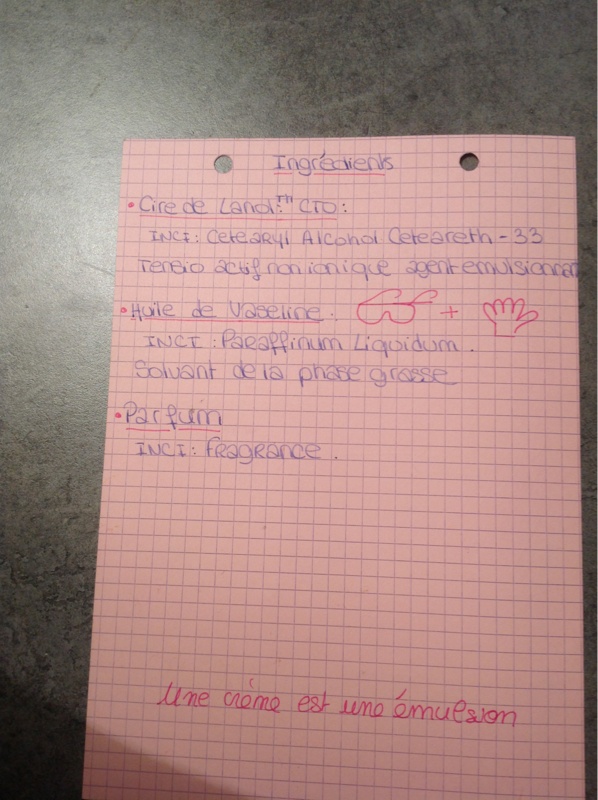 Ingrédients
• Cire de Lanol™ CTO :
INCI : Cetearyl Alcohol Ceteareth - 33
Tensio actif non ionique agent emulsionnant
• Huile de Vaseline . +
INCI : Paraffinum Liquidum .
Solvant de la phase grasse
• Parfum
INCI : fragrance .
Une crème est une émulsion